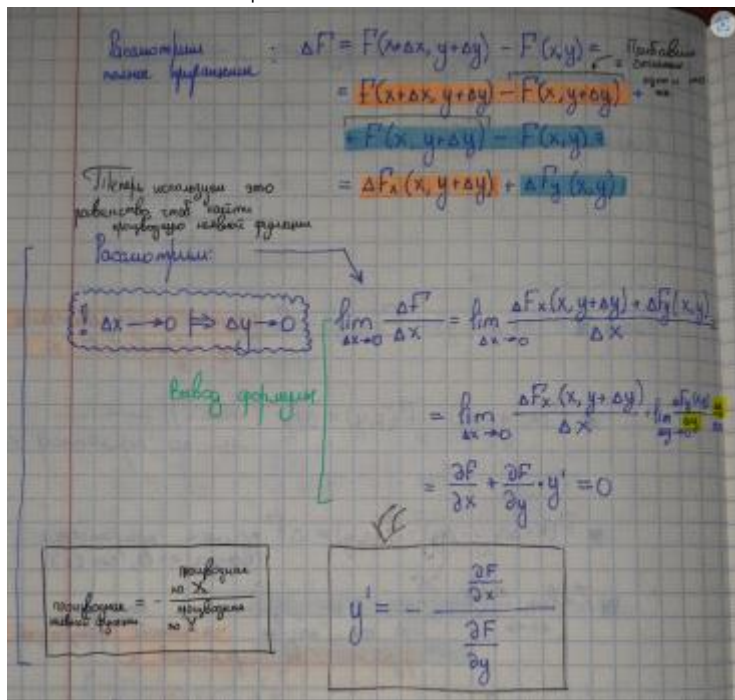 Рассмотрим полное приращение : ΔF = F(x+Δx, y+Δy) - F(x,y) =
= F(x+Δx, y+Δy) - F(x, y+Δy) +
+ F(x, y+Δy) - F(x,y) =
= ΔFx (x, y+Δy) + ΔFy (x,y)
Теперь используем это
равенство чтоб найти
производную неявной функции
Рассмотрим:
! Δx → 0 ⊨> Δy → 0
lim Δx→0 ΔF/Δx = lim Δx→0 (ΔFx(x, y+Δy) + ΔFy(x,y))/Δx =
Вывод формулы
= lim Δx→0 ΔFx(x, y+Δy)/Δx + lim Δy→0
= ∂F/∂x + ∂F/∂y · y' = 0
производная неявной функции = - производная по X / производная по Y
y' = - (∂F/∂x)/(∂F/∂y)